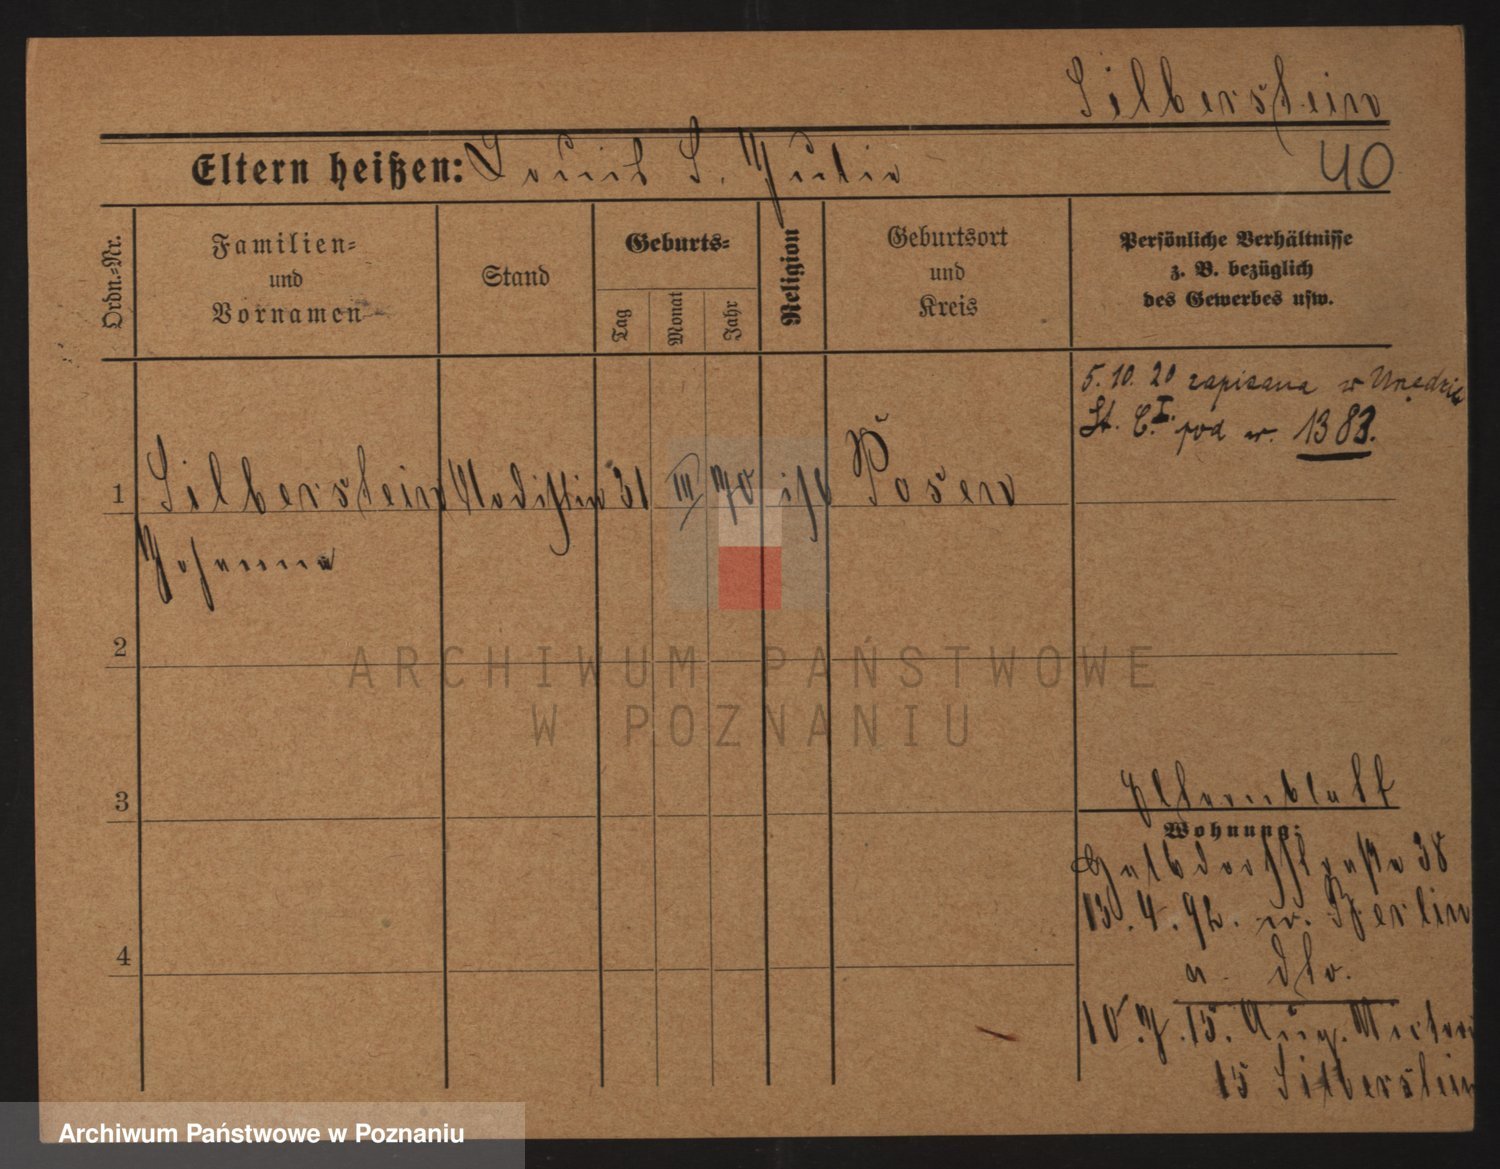 Silberstein
Eltern heißen: Louis S. Julie
40
Ordn.-Nr.
Familien-
und
Vornamen
Stand
Geburts-
Tag
Monat
Jahr
Religion
Geburtsort
und
Kreis
Persönliche Verhältnisse
z. B. bezüglich
des Gewerbes usw.
5. 10. 20 zapisana w Urzędzie
St. C. I. pod nr. 1383.
1 Silberstein Modistin 31 III 70 isr Posen
Johanna
2
3
4
Elternblatt
Wohnung:
Halbdorfstraße 38
13. 4. 92. n. Berlin
a. dto.
10. 7. 15. Aug. Victori
15 Silberstein
ARCHIWUM PAŃSTWOWE
W POZNANIU
Archiwum Państwowe w Poznaniu